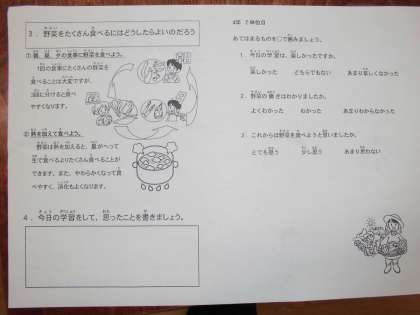 ３．野菜をたくさん食べるにはどうしたらよいのだろう
① 朝、昼、夕の食事に野菜を食べよう。
1回の食事にたくさんの野菜を
食べることは大変ですが、
3回に分けると食べ
やすくなります。
② 熱を加えて食べよう。
野菜は熱を加えると、量がへって
生で食べるよりたくさん食べることが
できます。また、やわらかくなって食
べやすく、消化もよくなります。
４．今日の学習をして、思ったことを書きましょう。
4年 2神包日
あてはまるものを○で囲みましょう。
1．今日の学習は、楽しかったですか。
楽しかった　どちらでもない　あまり楽しくなかった
2．野菜の働きはわかりましたか。
よくわかった　わかった　あまりわからなかった
3．これからは野菜を食べようと思いましたか。
とても思う　少し思う　あまり思わない